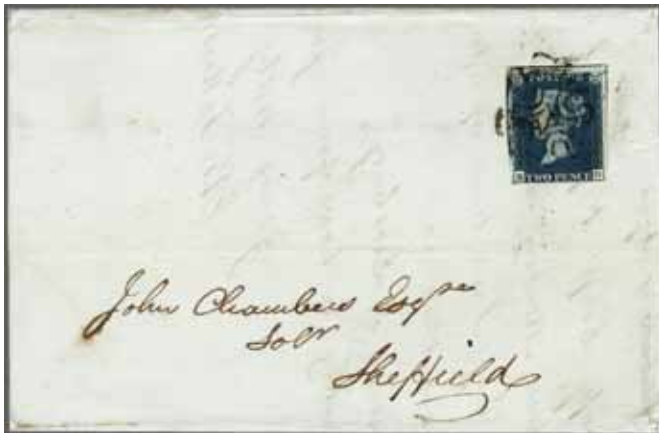 POSTAGE
TWO PENCE
John Chambers Esqre
Solr
Sheffield